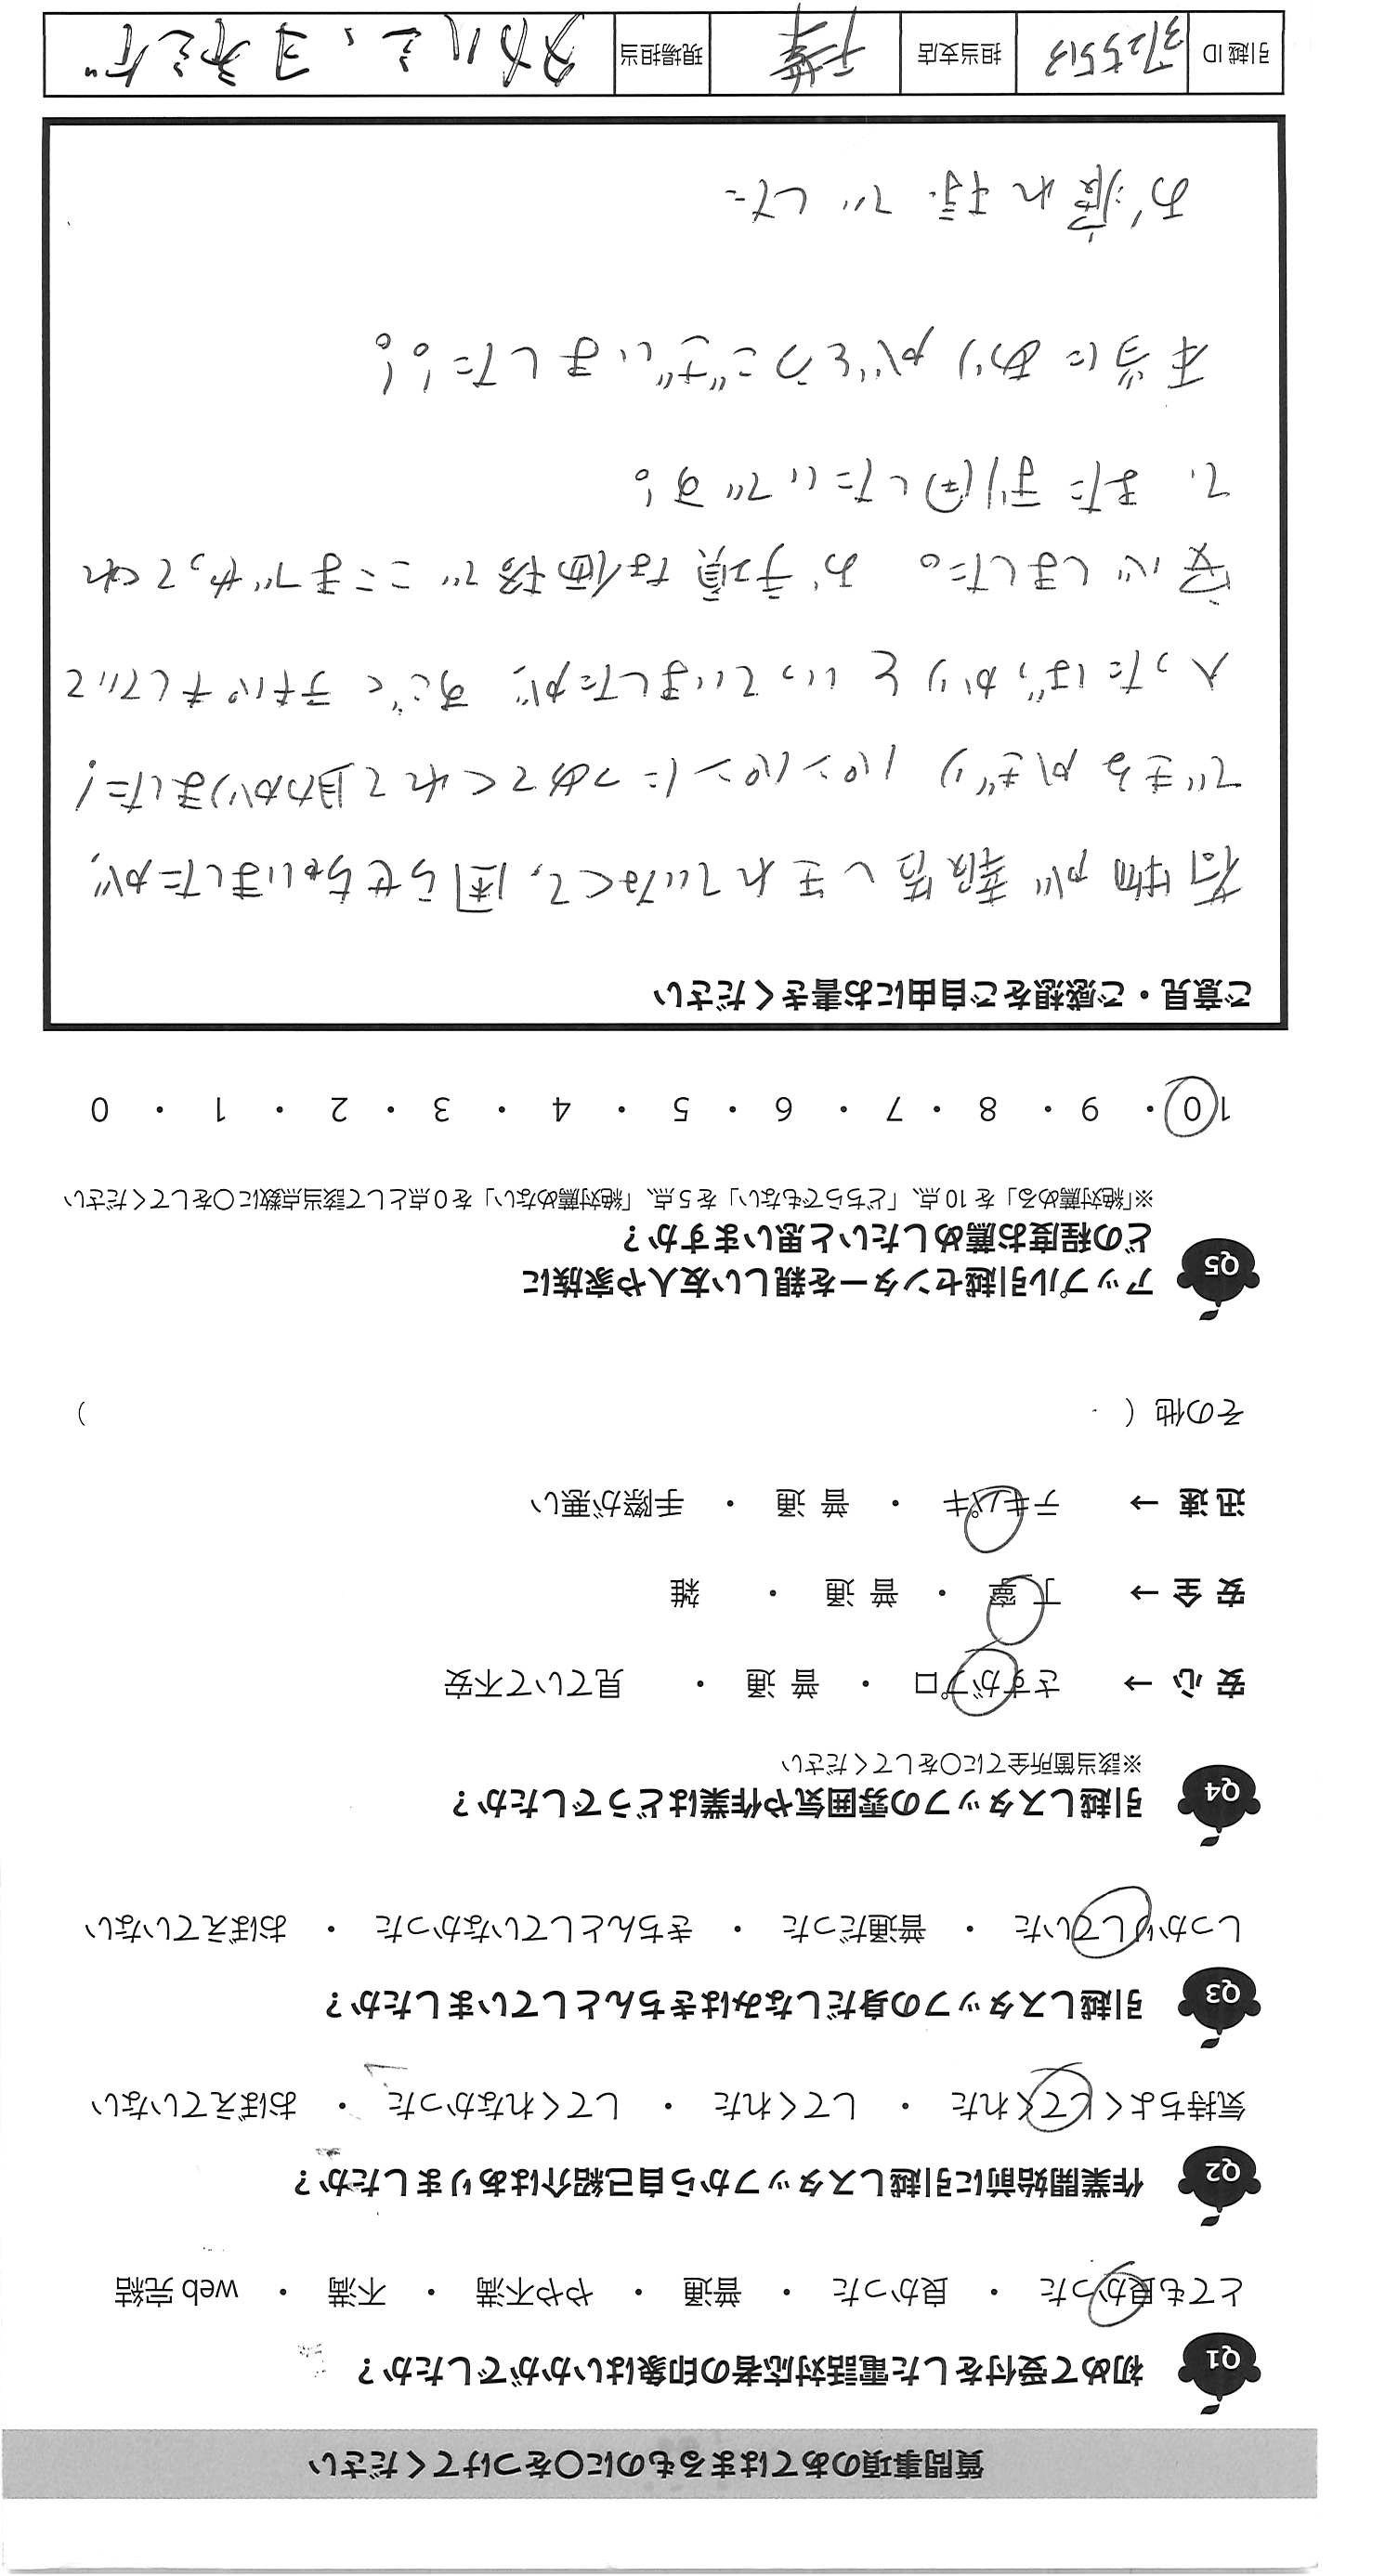 質問事項のあてはまるものに〇をつけてください
Q1 初めて受付をした電話対応者の印象はいかがでしたか？
とても良かった ・ 良かった ・ 普通 ・ やや不満 ・ 不満 ・ web 完結
Q2 作業開始前に引越しスタッフから自己紹介はありましたか？
気持ちよくしてくれた ・ してくれた ・ してくれなかった ・ おぼえていない
Q3 引越しスタッフの身だしなみはきちんとしていましたか？
しっかりしていた ・ 普通だった ・ きちんとしていなかった ・ おぼえていない
Q4 引越しスタッフの雰囲気や作業はどうでしたか？
※該当箇所全てに〇をしてください
安 心 → さすがプロ ・ 普 通 ・ 見ていて不安
安 全 → 丁寧 ・ 普 通 ・ 雑
迅 速 → テキパキ ・ 普 通 ・ 手際が悪い
その他（ ）
Q5 アップル引越センターを親しい友人や家族に
どの程度お薦めしたいと思いますか？
※「絶対薦める」を 10 点、「どちらでもない」を 5 点、「絶対薦めない」を 0 点として該当点数に〇をしてください
10 ・ 9 ・ 8 ・ 7 ・ 6 ・ 5 ・ 4 ・ 3 ・ 2 ・ 1 ・ 0
ご意見・ご感想をご自由にお書きください
荷物が報告しきれていなくて、困らせちゃいましたが、
できるかぎりパンパンにつめてくれて助かりました！
入ったばっかりといっていましたが、すごくテキパキしていて
安心しました。お手頃な価格でここまでやってくれ
て、また利用したいです！
本当にありがとうございました！！
お疲れ様でした
引越 ID 担当支店 千葉 現場担当